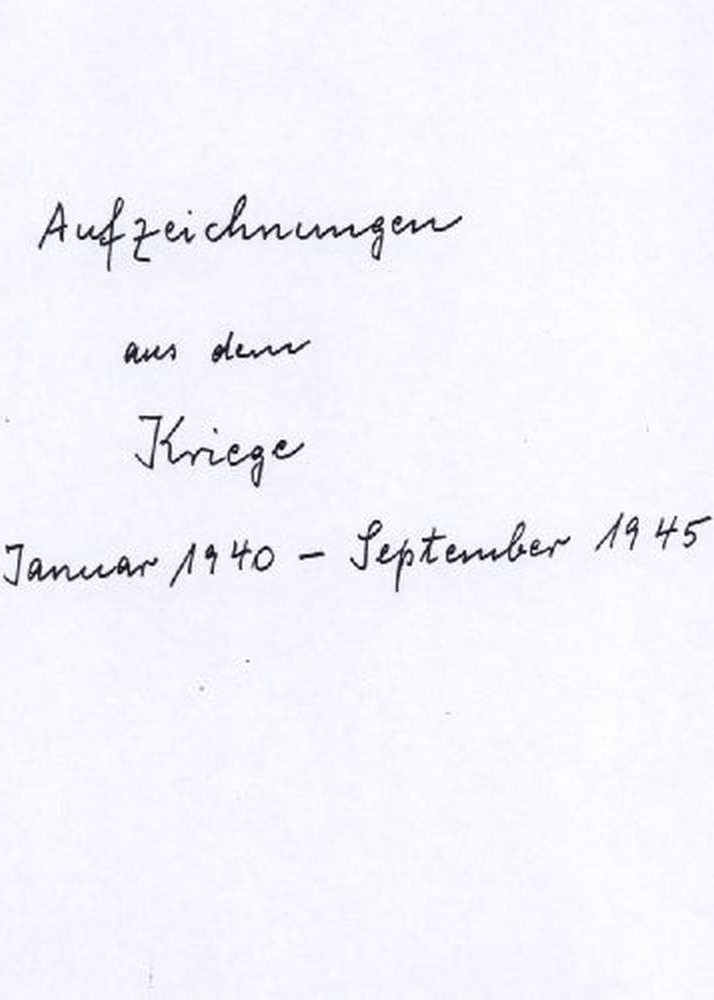 Aufzeichnungen
aus dem
Kriege
Januar 1940 – September 1945